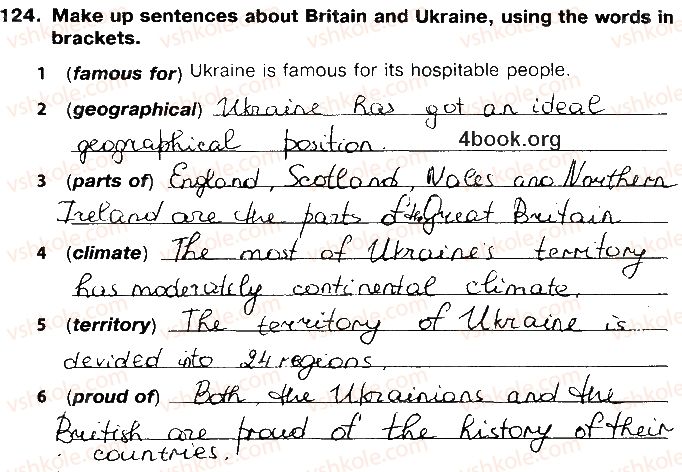 124. Make up sentences about Britain and Ukraine, using the words in
brackets.
1 (famous for) Ukraine is famous for its hospitable people.
2 (geographical) Ukraine has got an ideal
geographical position. 4book.org
3 (parts of) England, Scotland, Wales and Northern
Ireland are the parts of the Great Britain
4 (climate) The most of Ukraine's territory
has moderately continental climate.
5 (territory) The territory of Ukraine is
devided into 24 regions.
6 (proud of) Both, the Ukrainians and the
British are proud of the history of their
countries.